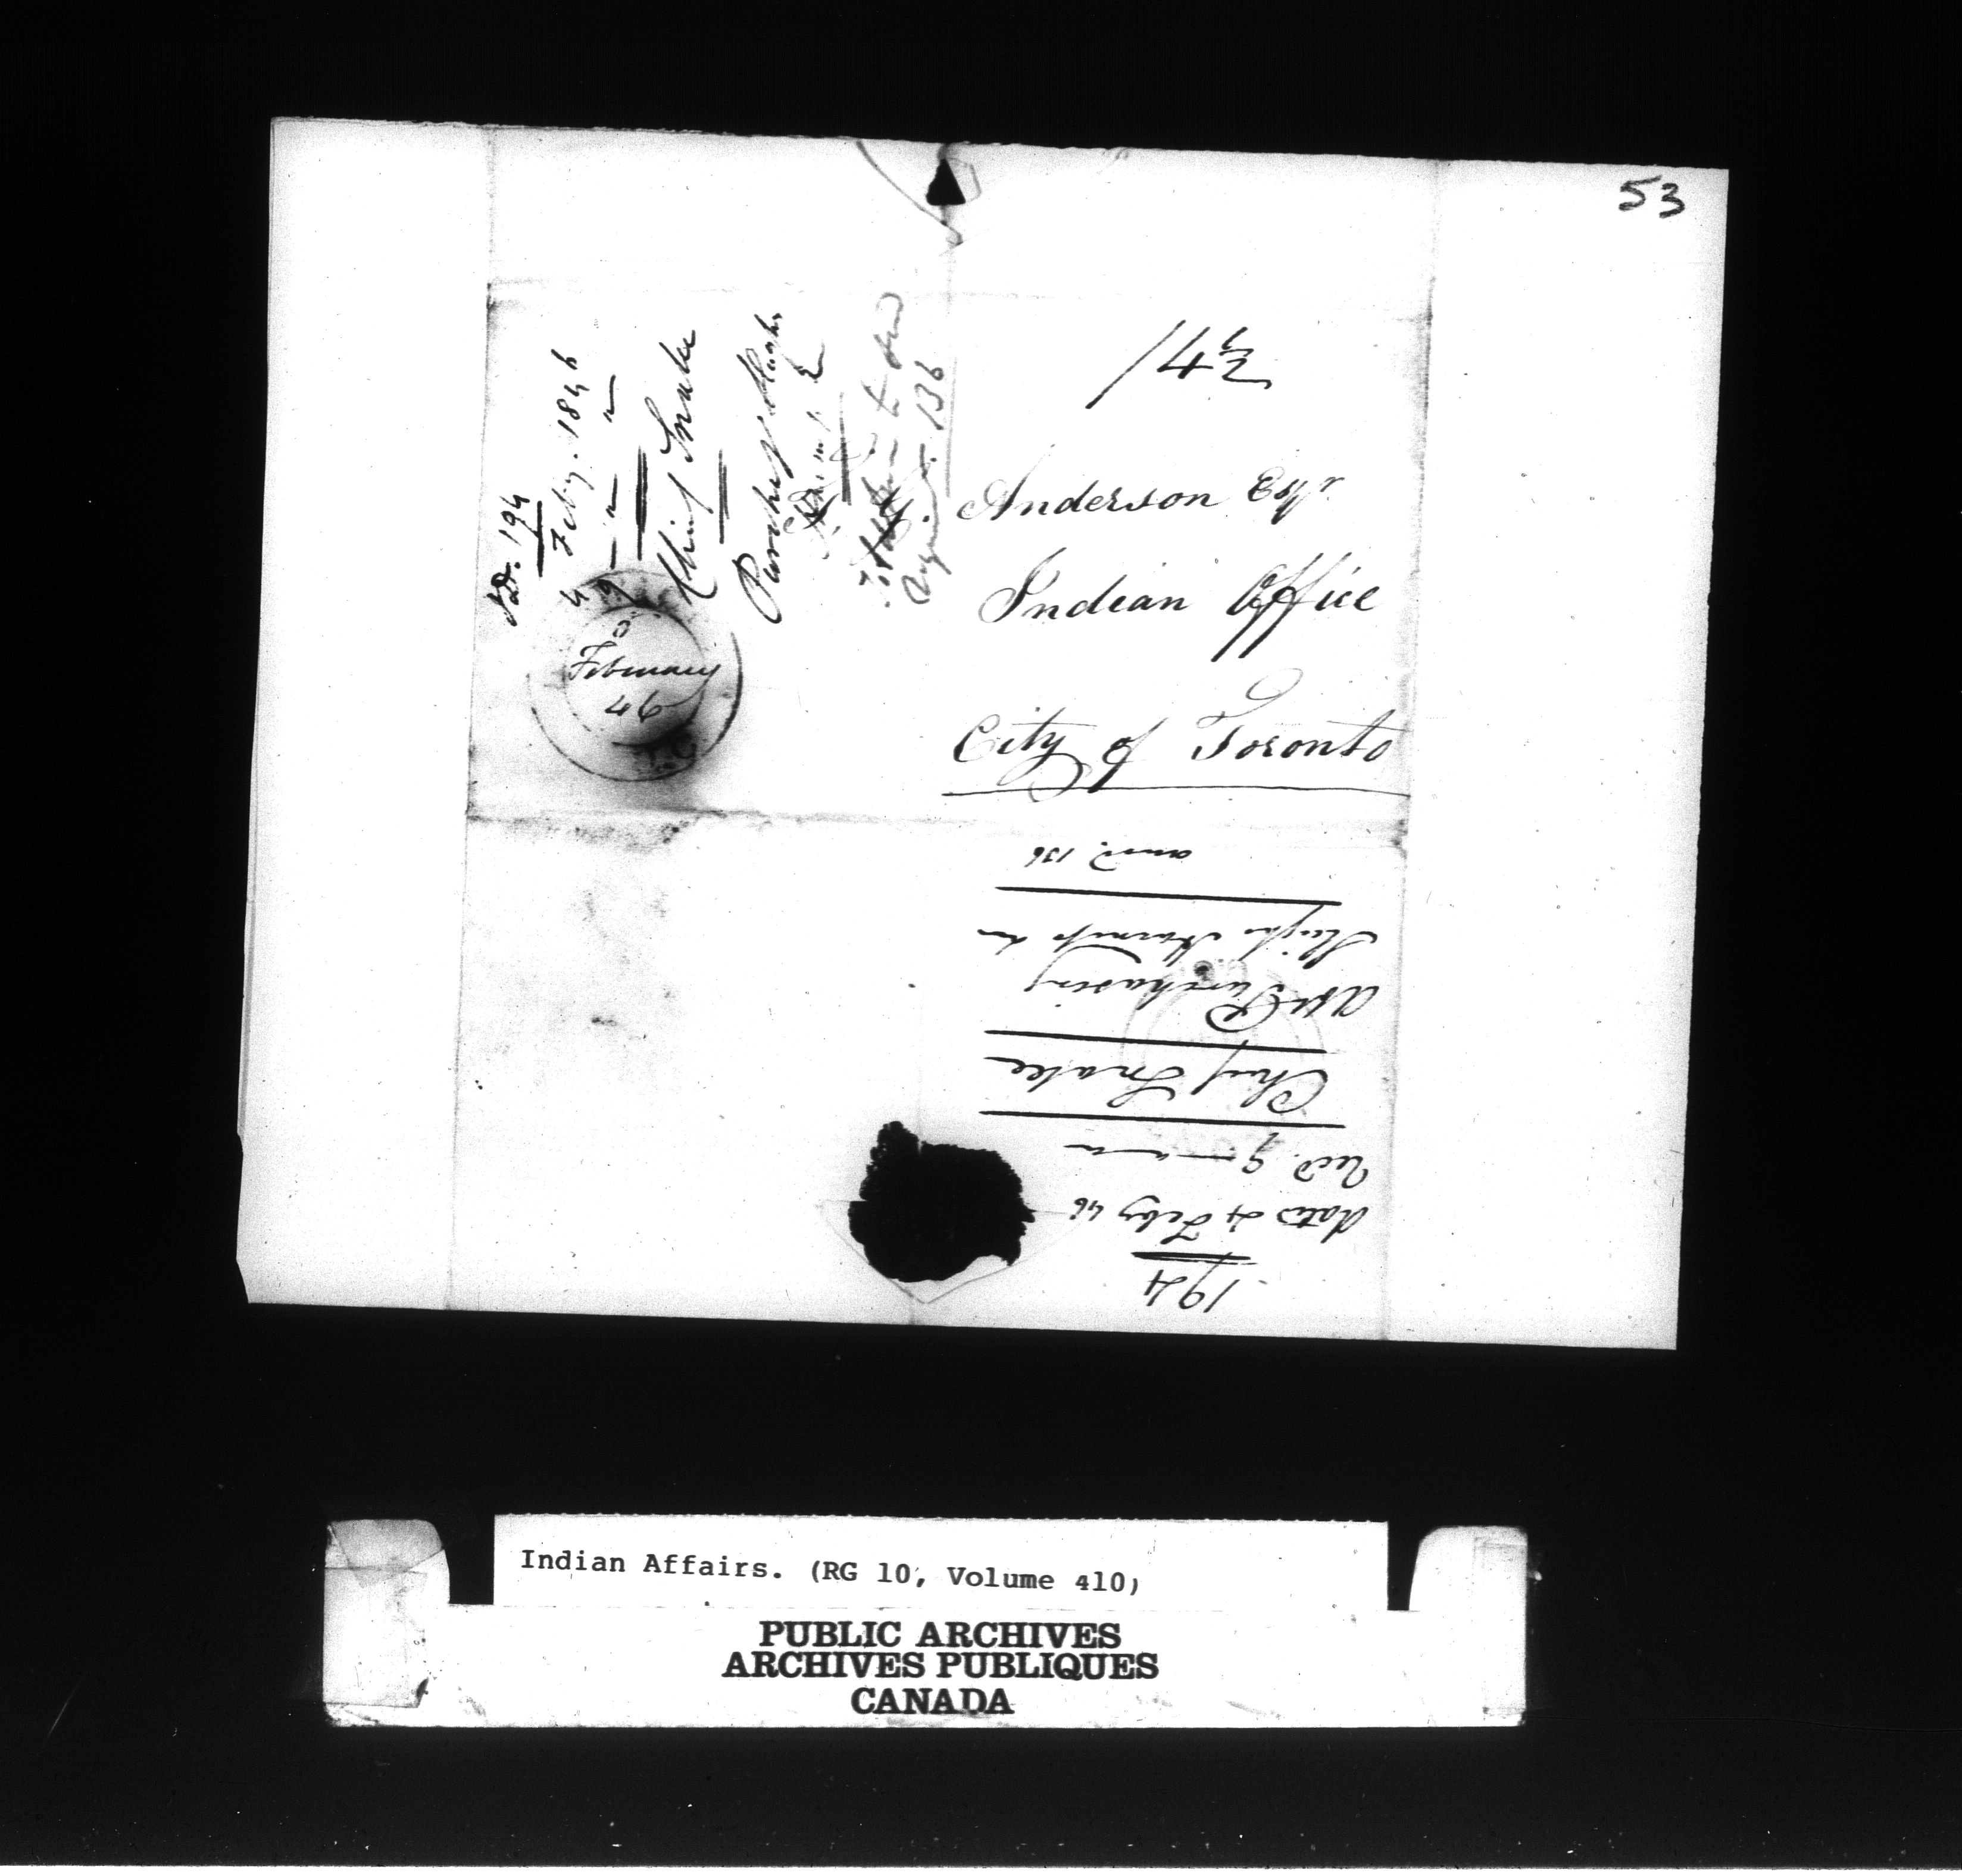 53
1/4½
Anderson Esqr
Indian Office
City of Toronto
No. 194
4 Feby. 1846
9 — " — "
Chief Snake
Purchas'g Sleighs
136
February
46
194
date 4 Feby 46
Recd. 9 — " — "
Chief Snake
abt Purchasing
Sleighs Harness &c
ansd. 136
Indian Affairs. (RG 10, Volume 410)
PUBLIC ARCHIVES
ARCHIVES PUBLIQUES
CANADA